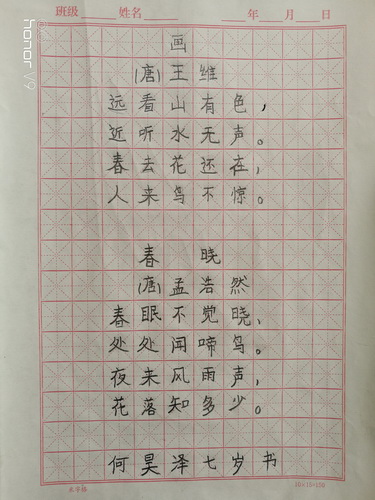 班级 姓名 年 月 日
画
(唐)王维
远看山有色,
近听水无声。
春去花还在,
人来鸟不惊。
春晓
(唐)孟浩然
春眠不觉晓,
处处闻啼鸟。
夜来风雨声,
花落知多少。
何昊泽七岁书
honor V9